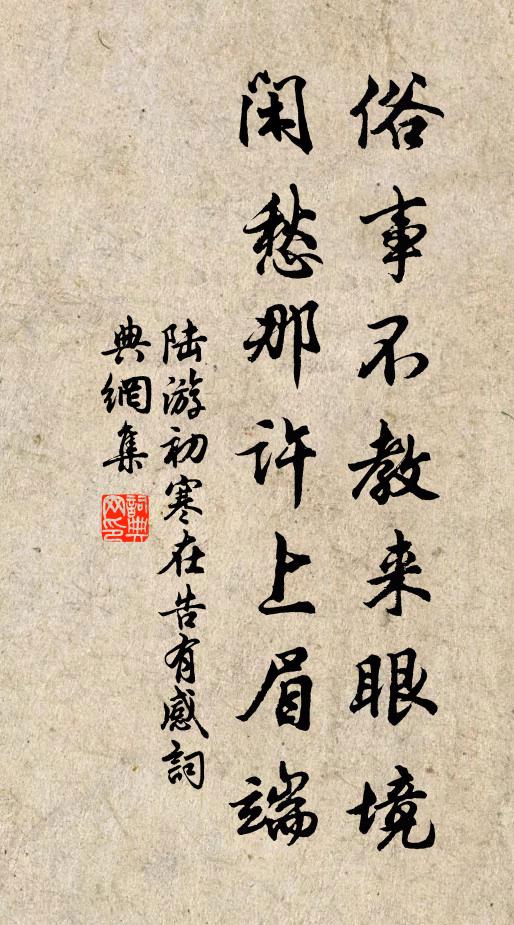 俗事不教来眼境
閑愁那许上眉端
陆游初寒在告有感詞
典網集
詞典网印